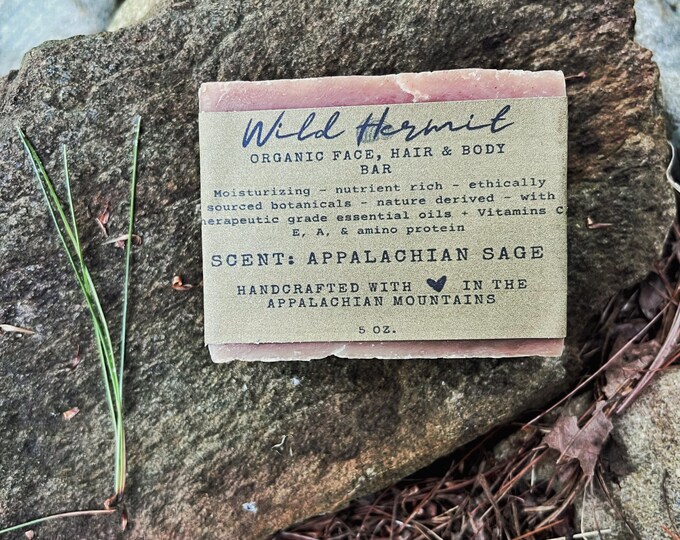 Wild Hermit
ORGANIC FACE, HAIR & BODY
BAR
Moisturizing - nutrient rich - ethically
sourced botanicals - nature derived - with
herapeutic grade essential oils + Vitamins C
E, A, & amino protein
SCENT: APPALACHIAN SAGE
HANDCRAFTED WITH ♥ IN THE
APPALACHIAN MOUNTAINS
5 OZ.